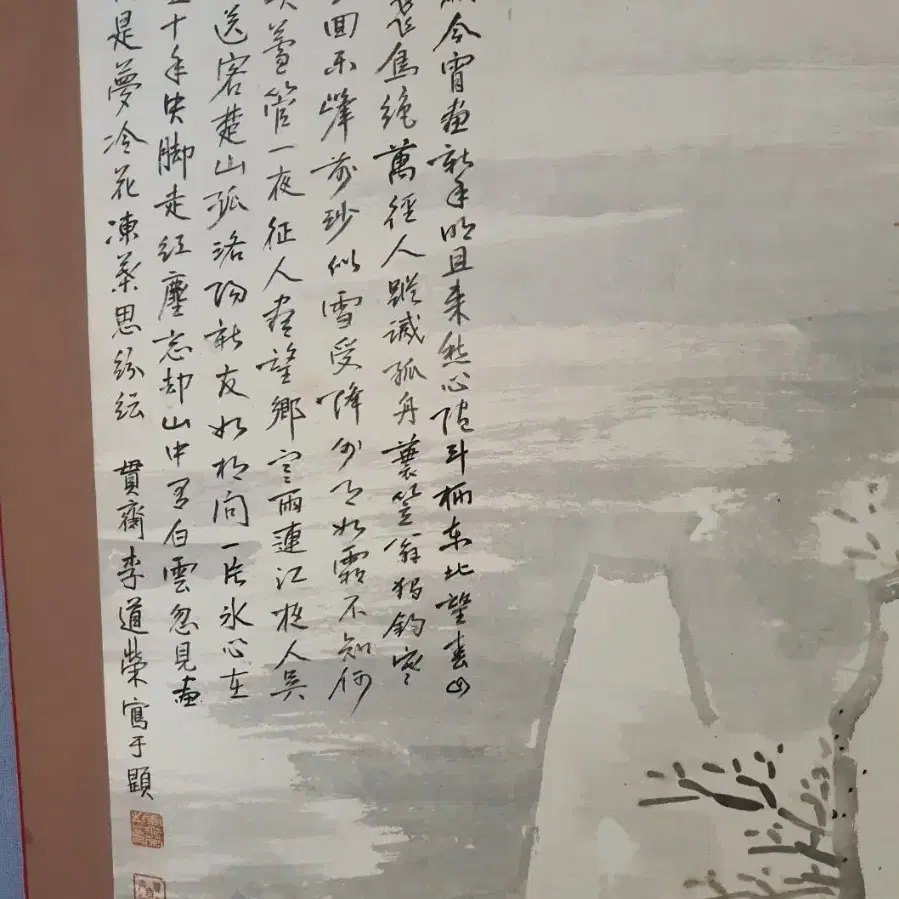 今宵盡新年明旦来愁心隨斗柄東北望春回
飛鳥絶萬徑人蹤滅孤舟蓑笠翁獨釣寒
回樂峰前沙似雪受降外月如霜不知何
吹蘆管一夜征人盡望鄉寒雨連江夜入吳
送客楚山孤洛陽親友如相問一片冰心在
五十年失脚走紅塵忘却山中有白雲忽見畫
是夢冷花凍思紛紜 貫齋李道榮寫于題